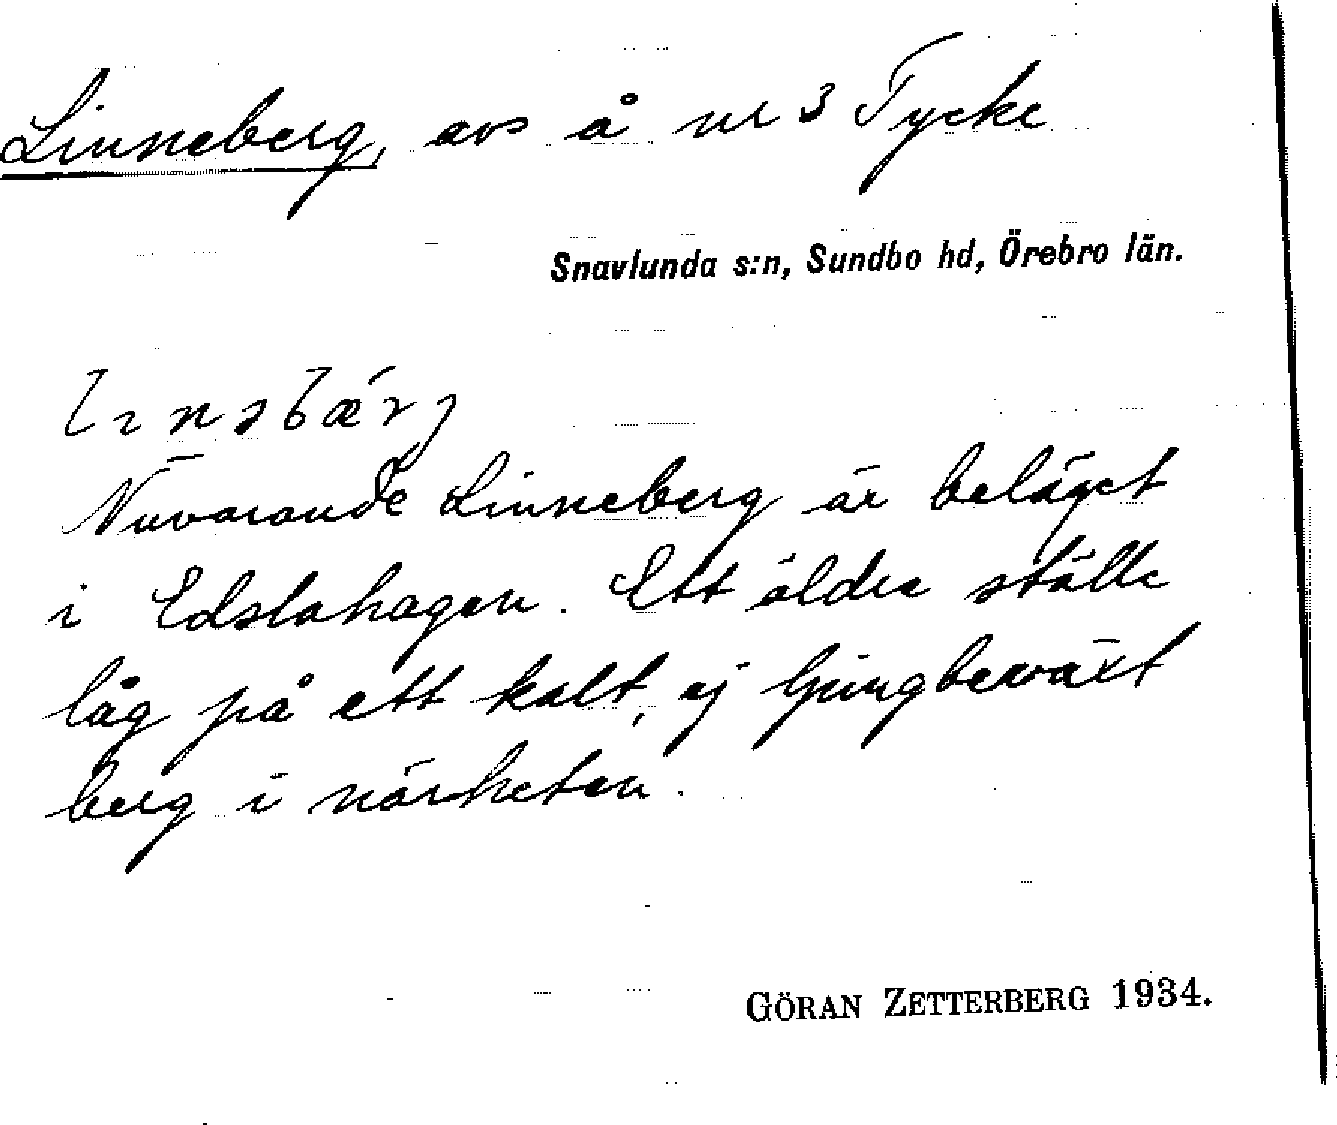 Linneberg, avs å nr 3 Tycke
Snavlunda s:n, Sundbo hd, Örebro län.
Nuvarande Linneberg är beläget
i Edslahagen. Ett äldre ställe
låg på ett kalt, ej ljungbeväxt
berg i närheten.
GÖRAN ZETTERBERG 1934.